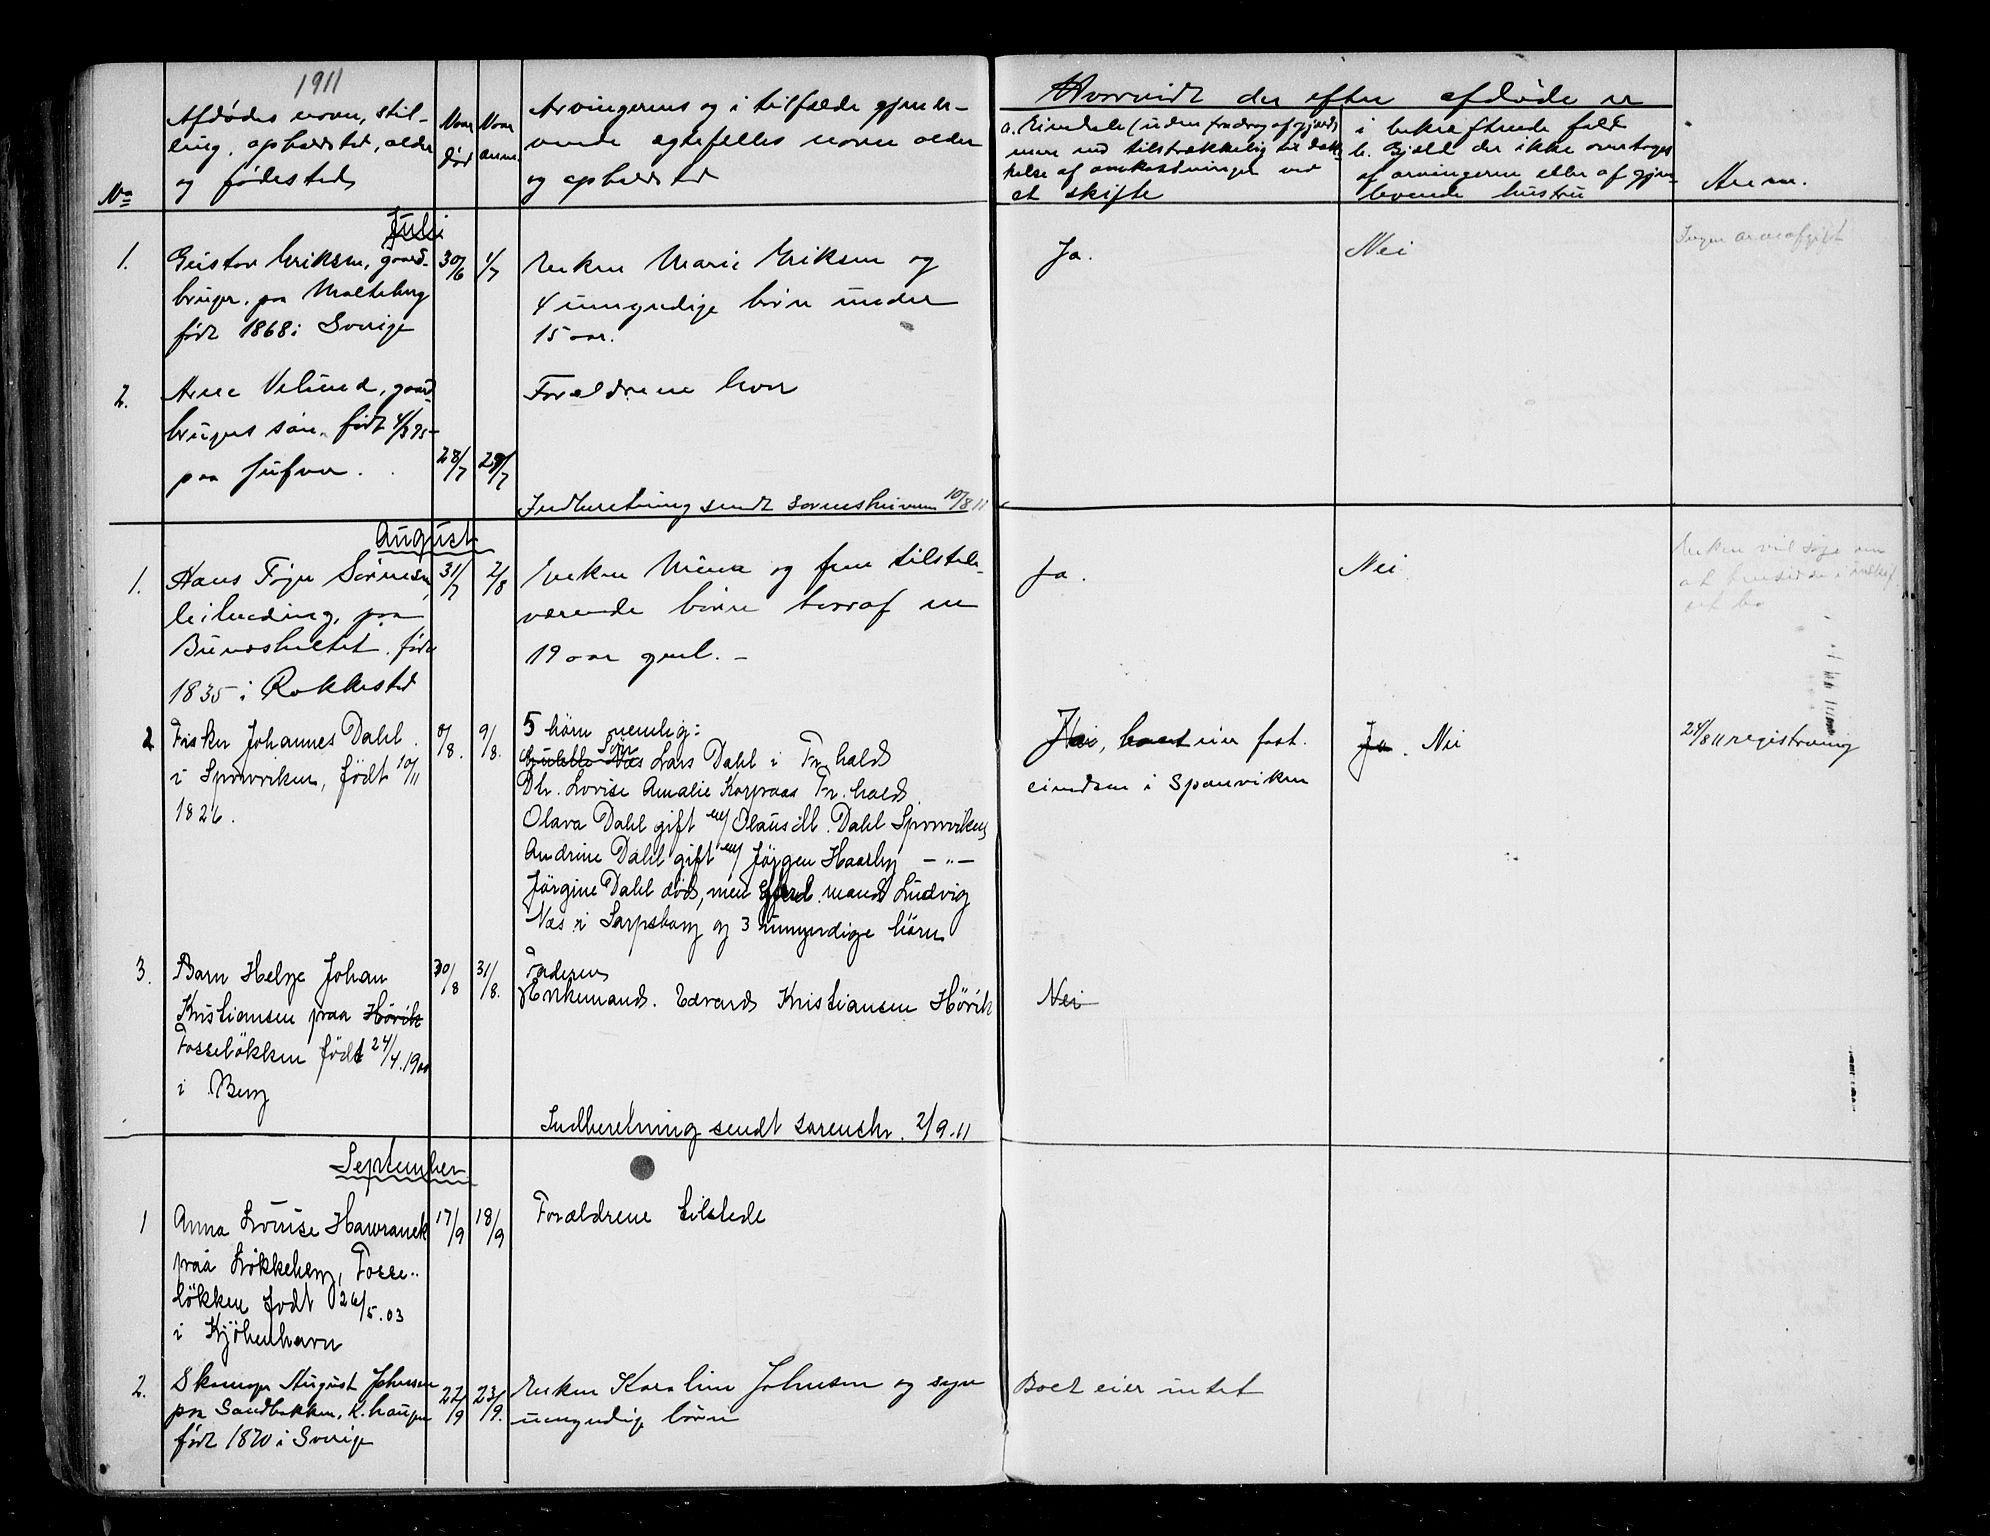 1911
No
Afdødes navn, stil-
ling, opholdsted, alder
og fødested
Naar
død
Naar
anm.
Arvingernes og i tilfælde gjenle-
vende egtefelles navn alder
og opholdsted
Hvorvidt der efter afdøde er
a. Eiendele (uden fradrag af gjæld)
men ved tilstrækkelig til dæk-
kelse af omkostninger ved
et skifte
i bekræftende fald
b. Gjæld der ikke overtages
af arvingerne eller af gjen-
levende hustru
Anm.
Juli
1.
Gustav Eriksen, gaard-
bruger, paa Malteberg
født 1868 i Sverige
30/6
1/7
Enken Marie Eriksen og
4 umyndige børn under
15 aar.
Ja.
Nei
Ingen arveafgift
2.
Arne Velund, gaard-
brugers søn, født 4/3 95
paa Jufva.
28/7
29/7
Forældrene lever
Indberetning sendt sorenskriveren 10/8 11
August
1.
Hans Føyn Sørensen
leilending, paa
Buvasholtet. født
1835 i Rokkestad
31/7
2/8
Enken Mina og fem tilstede-
værende børn hvoraf en
19 aar gml. -
Ja.
Nei
Enken vil søge om
at hensidde i uskif-
tet bo
2
Fisker Johannes Dahl
i Sponviken, født 10/11
1826.
8/8.
9/8.
5 børn nemlig:
Søn Lars Dahl i Fr.hald
Dtr. Lovise Amalie Korpaas Fr. hald
Olava Dahl gift m/ Olaus M. Dahl Sponviken
Andrine Dahl gift m/ Jørgen Haarby — " —
Jørgine Dahl død, men gjenl. mand Ludvig
Næs i Sarpsborg og 3 umyndige børn
Ja, boet eier fast.
eiendom i Sponviken
Ja. Nei
24/8 11 registrering
3.
Barn Helge Johan
Kristiansen paa Hörik
Fosseløkken født 24/4. 1900
i Berg
30/8
31/8.
Faderen
Enkemand. Edvard Kristiansen Hørik
Nei
Indberetning sendt sorenskr. 2/9. 11
September
1
Anna Lovise Hawranek
paa Løkkeberg, Fosse-
løkken født 26/5. 03
i Kjøbenhavn
17/9
18/9
Forældrene tilstede
2.
Skomager August Johnsen
paa Sandbakken, K. haugen
født 1870 i Sverige
22/9
23/9.
Enken Karoline Johnsen og syv
umyndige børn
Boet eier intet